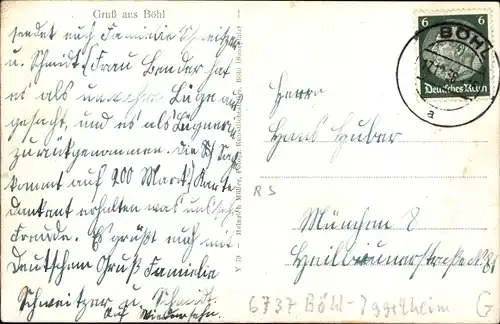 Gruß aus Böhl
sendet euch Familie Schweitzer
u. Schmidt. Frau Bender hat
es als unwahre Lüge aus-
gesagt, und es als Lügnerin
zurückgenommen. Die
kommt auf 200 Mark. Karte
dankend erhalten was uns sehr
Freude. Es grüßt euch mit
Deutschem Gruß Familie
Schweitzer u. Schmidt.
Auf Wiedersehn.
Y 79 - Heinrich Müller,
6 6
Deutsches Reich
BÖHL
a
Herrn
Hans Huber
R S
München 8
6737 Böhl-Iggelheim
G